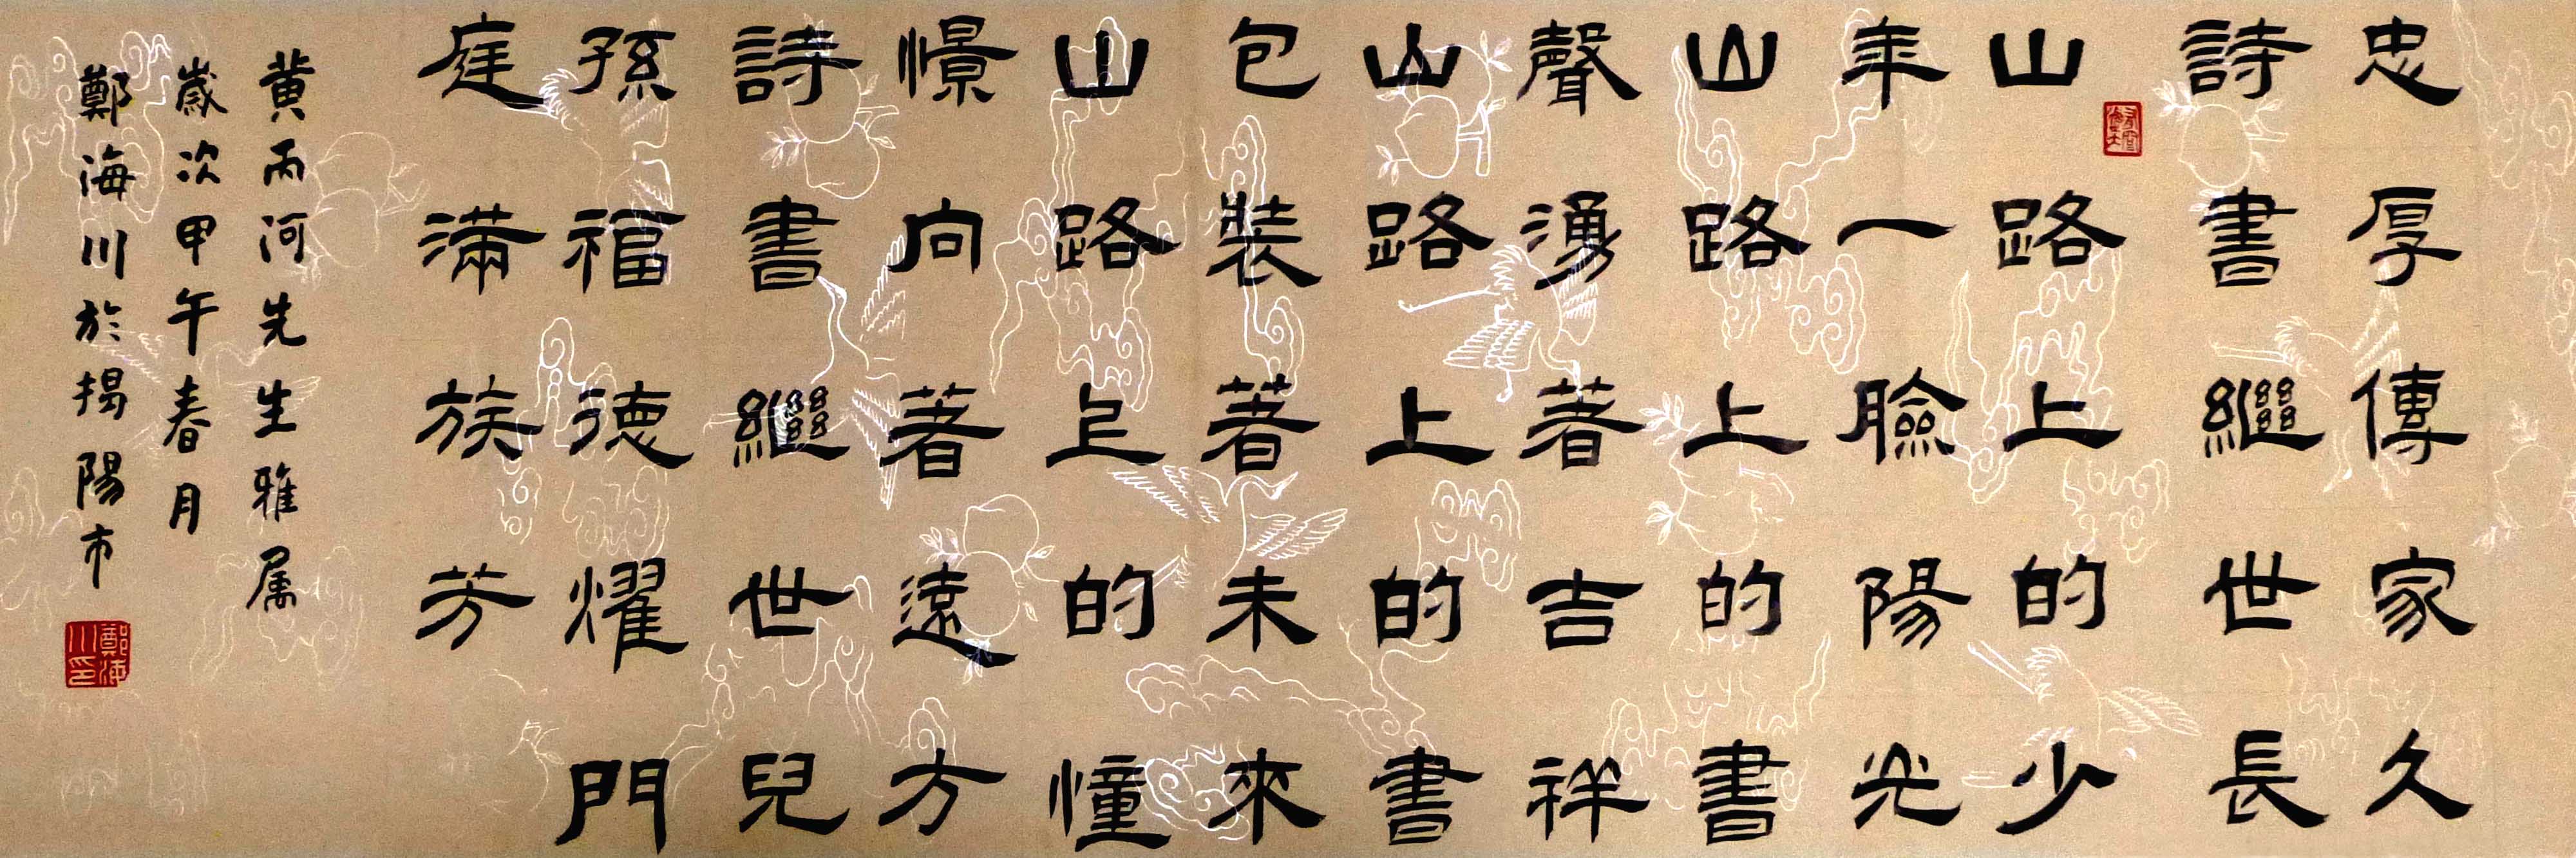 忠厚傳家久
詩書繼世長
山路上的少
年一臉陽光
山路上的書
聲湧著吉祥
山路上的書
包裝著未來
山路上的憧
憬向著遠方
詩書繼世兒
孫福德耀門
庭滿族芳
黃丙河先生雅属
歲次甲午春月
鄭海川於揭陽市
鄭海川印